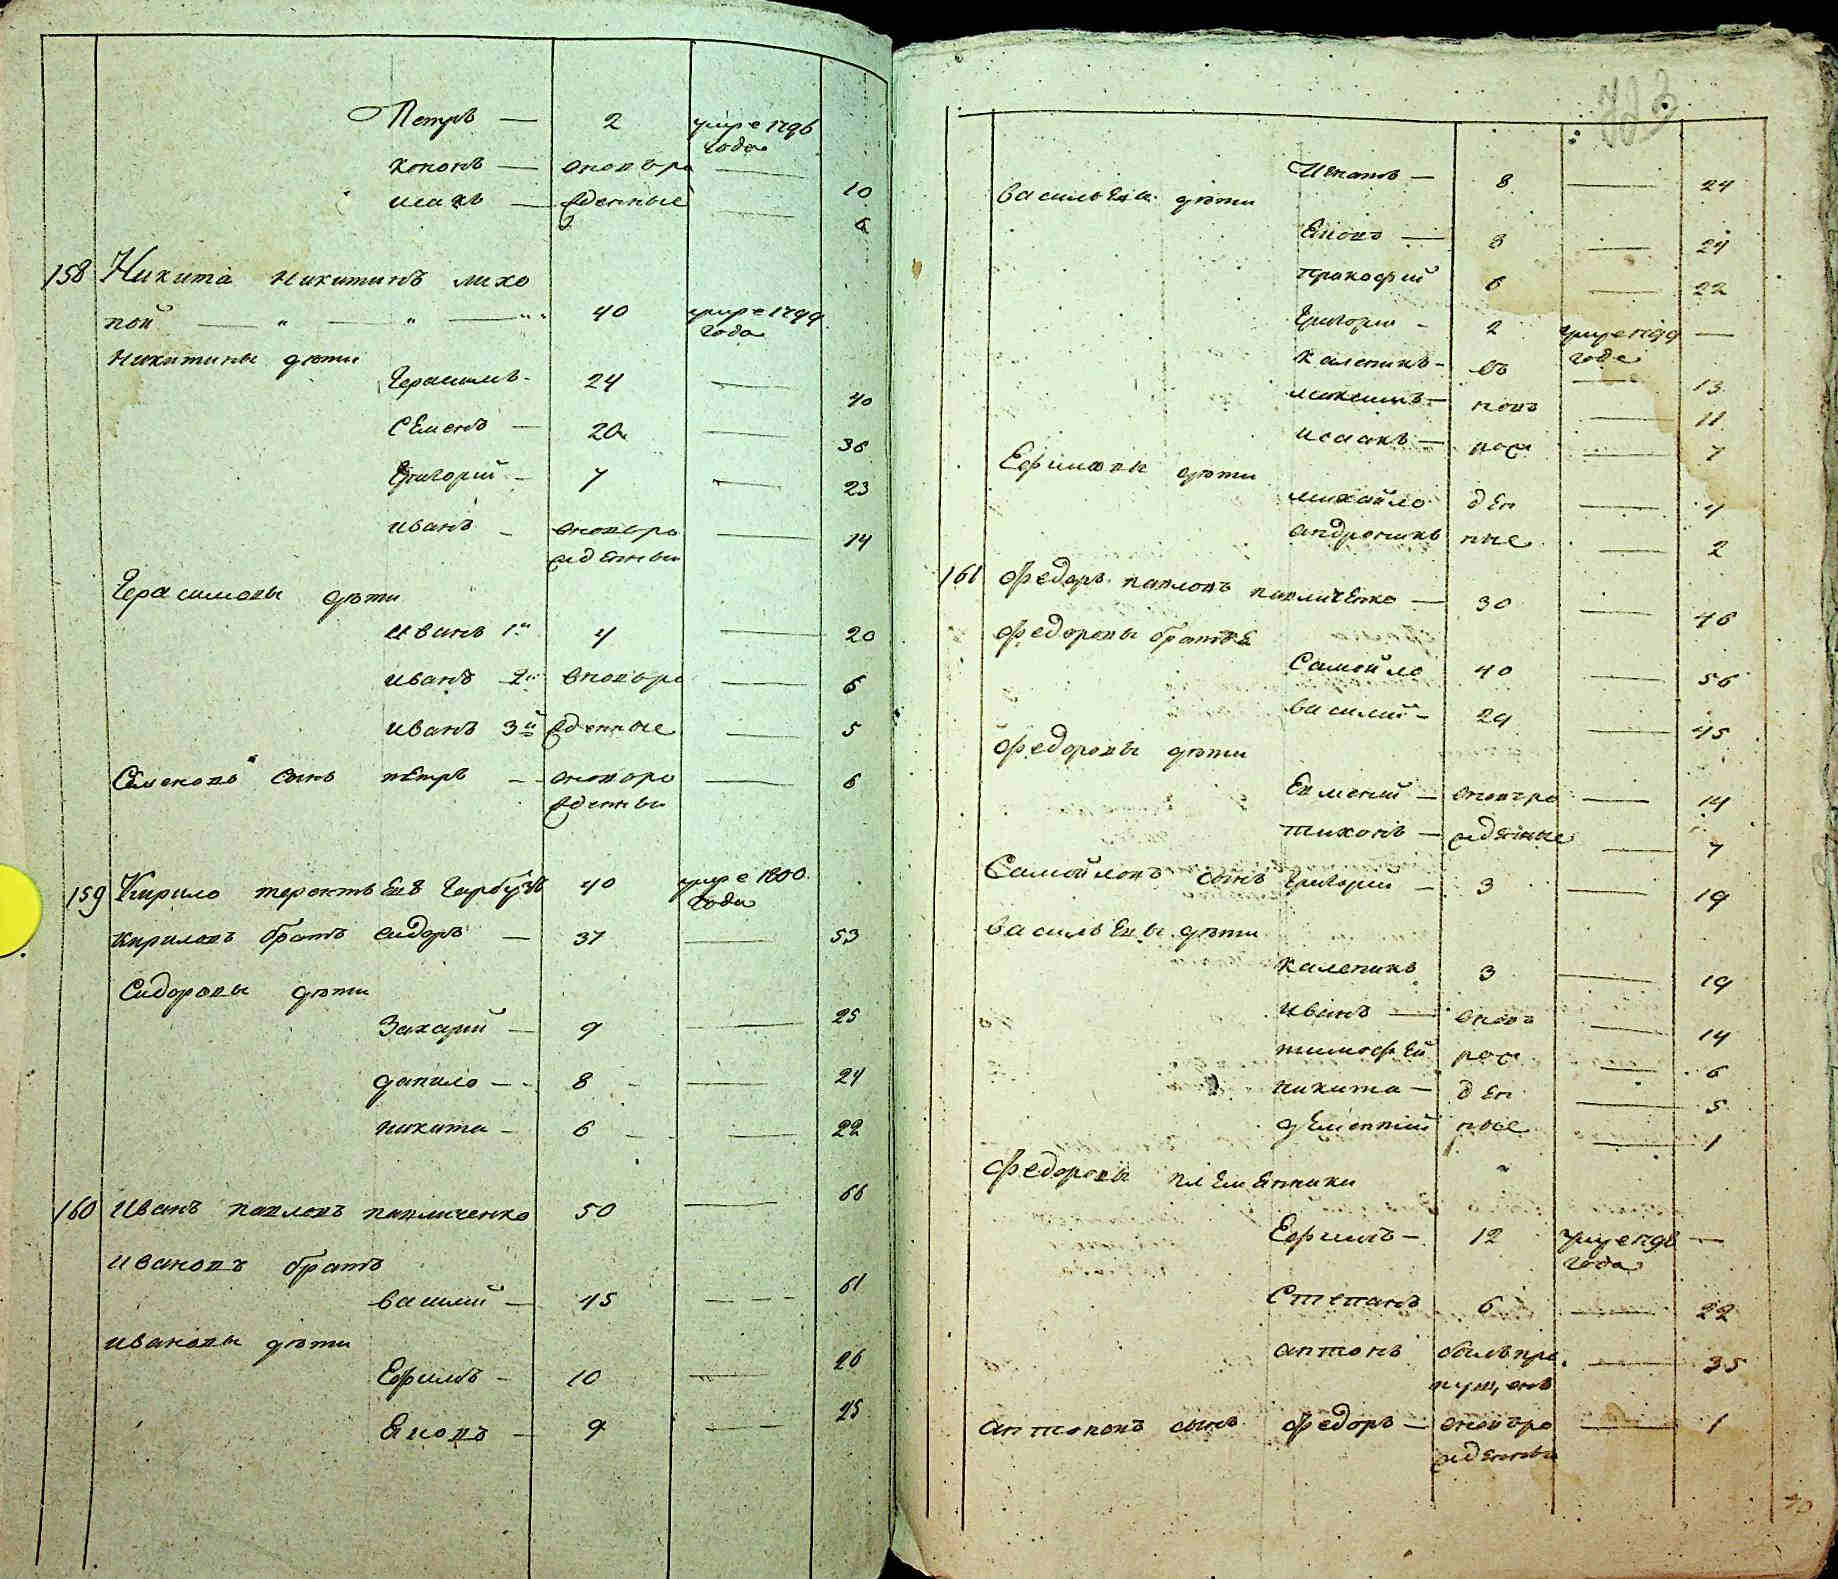 Петръ — 2 умре 1796
года
кононъ — вновъро —
10
исакъ — жденные —
6
158 Никита Никитинъ лихо
пой — " — " — " 40 умре 1799
года
Никитины дѣти
Герасимъ - 24 — 40
Семенъ — 20 — 36
Григорий - 7 — 23
иванъ - вновъро — 14
жденный
Герасимовы дѣти
иванъ 1й 4 — 20
иванъ 2й вновъро — 6
иванъ 3й жденные — 5
Семеновъ сынъ петръ — вновъро — 6
жденный
159 Кирило терентьевъ Гарбузъ 40 умре 1800
года
кириловъ братъ сидоръ — 37 — 53
Сидоровы дѣти
Захарий — 9 — 25
данило — 8 — 24
никита — 6 — 22
160 Иванъ павловъ павличенко 50 — 66
ивановъ братъ
василий — 45 — 61
ивановы дѣти
Ефимъ — 10 — 26
Яковъ — 9 — 25
Игнатъ — 8 — 24
васильевы дѣти
Яковъ — 8 — 24
прокофий 6 — 22
Григорий - 2 умре 1799 —
года
каленикъ - въ — 13
максимъ — новъ — 11
исаакъ — рож — 7
Ефимовы дѣти
михайло ден — 4
андроникъ ные — 2
161 Федоръ павловъ павличенко — 30 — 46
Федоровы братья
Самойло 40 — 56
василий - 29 — 45
Федоровы дѣти
Евмений — вновъро — 14
тихонъ — жденные — 7
Самойловъ сынъ Григорий — 3 — 19
васильевы дѣти
каленикъ 3 — 19
иванъ — вновъ — 14
тимофей рож — 6
никита — ден — 5
дементий ные — 1
Федоровы племянники
Ефимъ — 12 умре 1796 —
года
Степанъ 6 — 22
антонъ былъ про — 35
пущенъ
антоновъ сынъ Федоръ — вновъро — 1
жденный